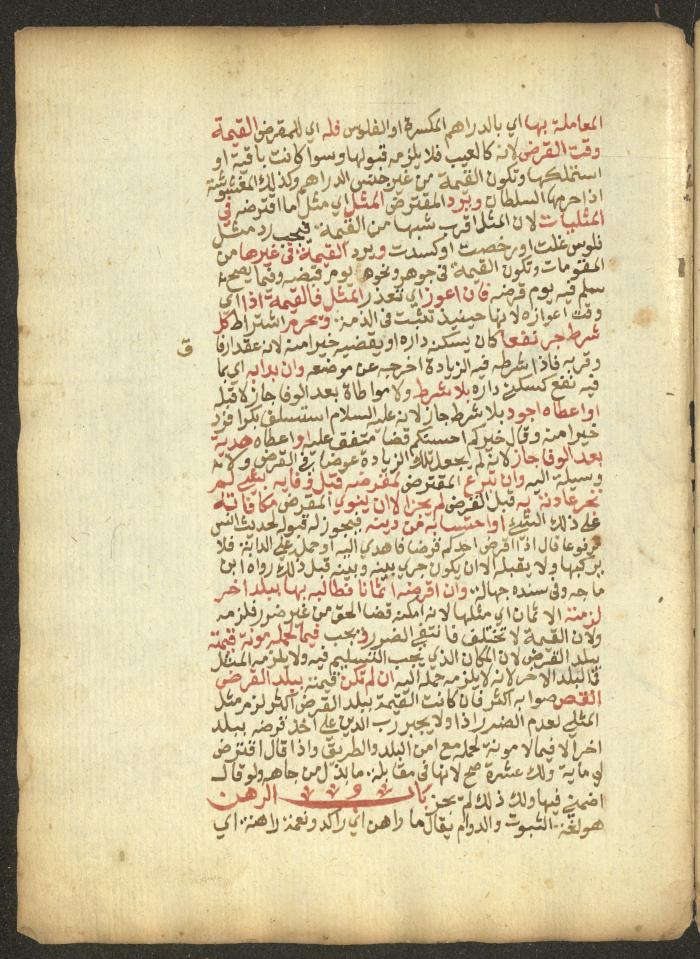 المعاملة بها اي بالدراهم المكسرة او الفلوس فله اي للمقرض القيمة
وقت القرض لانه كالعيب فلا يلزمه قبولها وسوا كانت باقية او
استهلكها وتكون القيمة من غير جنس الدراهم وكذلك المغشوشة
اذا حرمها السلطان ويرد المقترض المثل اي مثل ما اقترضه في
المثليات لان المثل اقرب شبها من القيمة فيجب رد مثل
فلوس غلت او رخصت او كسدت ويرد القيمة في غيرها من
المقومات وتكون القيمة في جوهر ونحوه يوم قبضه وفيما يصح
سلم فيه يوم قرضه فان اعوز اي تعذر المثل فالقيمة اذا اي
وقت اعوازه لانها حينيذ تثبت في الذمة ويحرم اشتراط كل
شرط جر نفعا كان يسكنه داره او يقضيه خيرا منه لانه عقد ارفا
ق
وقربه فاذا شرط فيه الزيادة اخرجه عن موضعه وان بدا به اي بما
فيه نفع كسكنى داره بلا شرط ولا مواطاة بعد الوفا جاز لا قبله
او اعطاه اجود بلا شرط جاز لانه عليه السلام استسلف بكرا فرد
خيرا منه وقال خيركم احسنكم قضا متفق عليه او اعطاه هدية
بعد الوفا جاز لانه لم يجعل تلك الزيادة عوضا في القرض ولا
وسيلة اليه وان تبرع المقترض لمقرضه قبل وفايه بشي لم
تجر عادته به قبل القرض لم يجز الا ان ينوي المقرض مكافاته
على ذلك الشي او احتسابه من دينه فيجوز له قبوله لحديث انس
مرفوعا قال اذا اقرض احدكم قرضا فاهدي اليه او حمله على الدابة فلا
يركبها ولا يقبله الا ان يكون جري بينه وبينه قبل ذلك رواه ابن
ماجه وفي سنده جهالة وان اقرضه اثمانا فطالبه بها ببلد اخر
لزمته الاثمان اي مثلها لانه امكنه قضا الحق من غير ضرر فلزمه
ولان القيمة لا تختلف فانتفي الضرر فيجب فيما لحمله مونة قيمته
ببلد القرض لان المكان الذي يجب التسليم فيه ولا يلزمه المثل
في البلد الاخر لانه لا يلزمه حمله اليه ان لم تكن قيمته ببلد القرض
انقص صوابه اكثر فان كانت القيمة ببلد القرض اكثر لزم مثل
المثلي لعدم الضرر اذا ولا يجبر رب الدين على اخذ قرضه ببلد
اخر الا فيما لا مونة لحمله مع امن البلد والطريق واذا قال اقترض
لي ماية ولك عشرة صح لانها في مقابلة ما بذل من جاهه ولو قال
اضمني فيها ولك ذلك لم يجز باب الرهن
هو لغة الثبوت والدوام يقال ما راهن اي راكد ونعمة راهنة اي